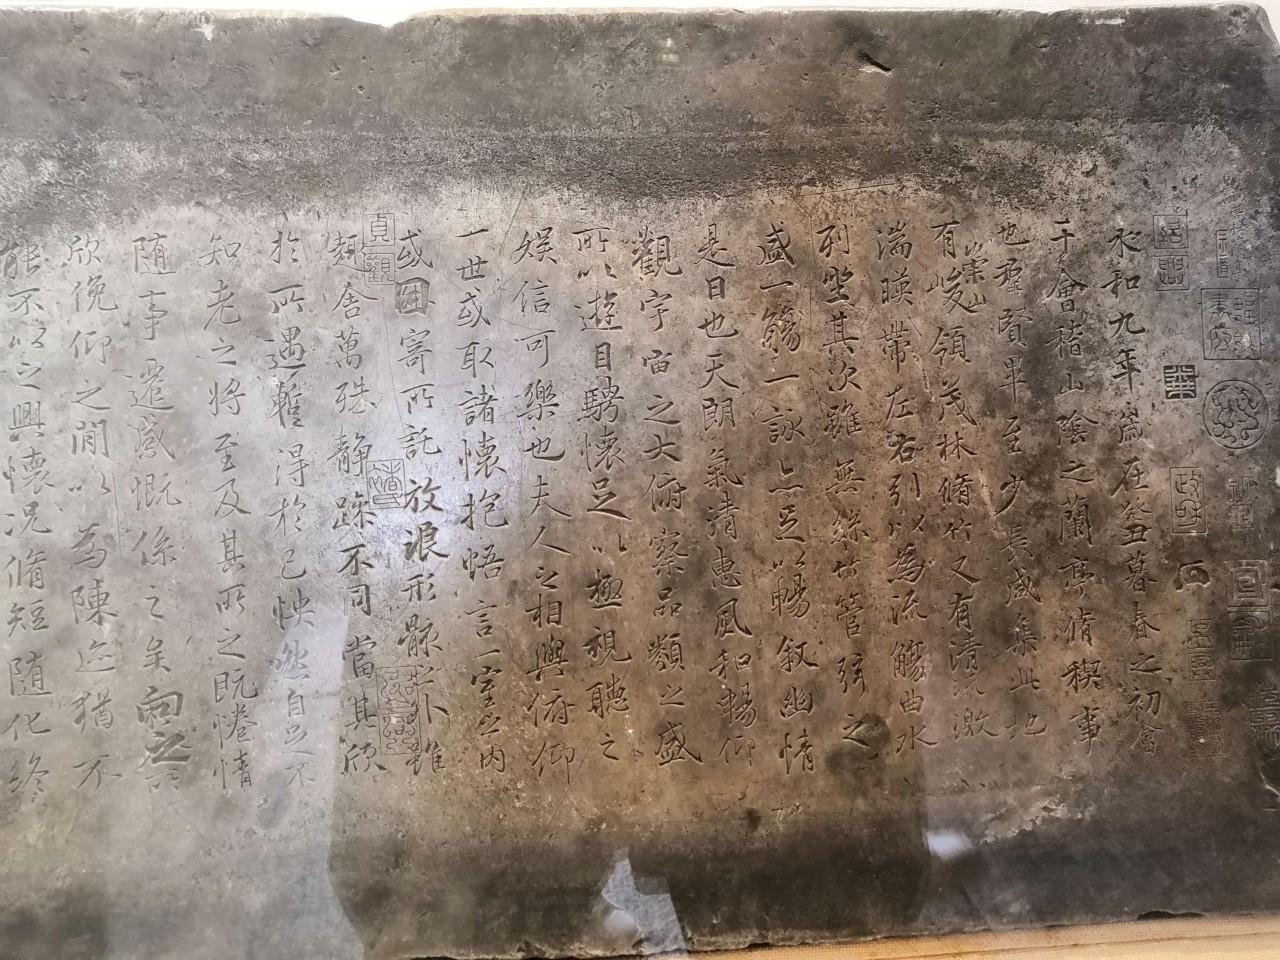 永和九年歲在癸丑暮春之初會
于會稽山陰之蘭亭脩稧事
也羣賢畢至少長咸集此地
有崇山峻領茂林脩竹又有清流激
湍暎帶左右引以為流觴曲水
列坐其次雖無絲竹管弦之
盛一觴一詠亦足以暢叙幽情
是日也天朗氣清惠風和暢仰
觀宇宙之大俯察品類之盛
所以遊目騁懷足以極視聽之
娛信可樂也夫人之相與俯仰
一世或取諸懷抱悟言一室之內
或因寄所託放浪形骸之外雖
趣舍萬殊靜躁不同當其欣
於所遇暫得於己怏然自足不
知老之將至及其所之既惓情
隨事遷感慨係之矣向之所
欣俛仰之閒以為陳迹猶不
能不以之興懷況脩短隨化終
貞觀